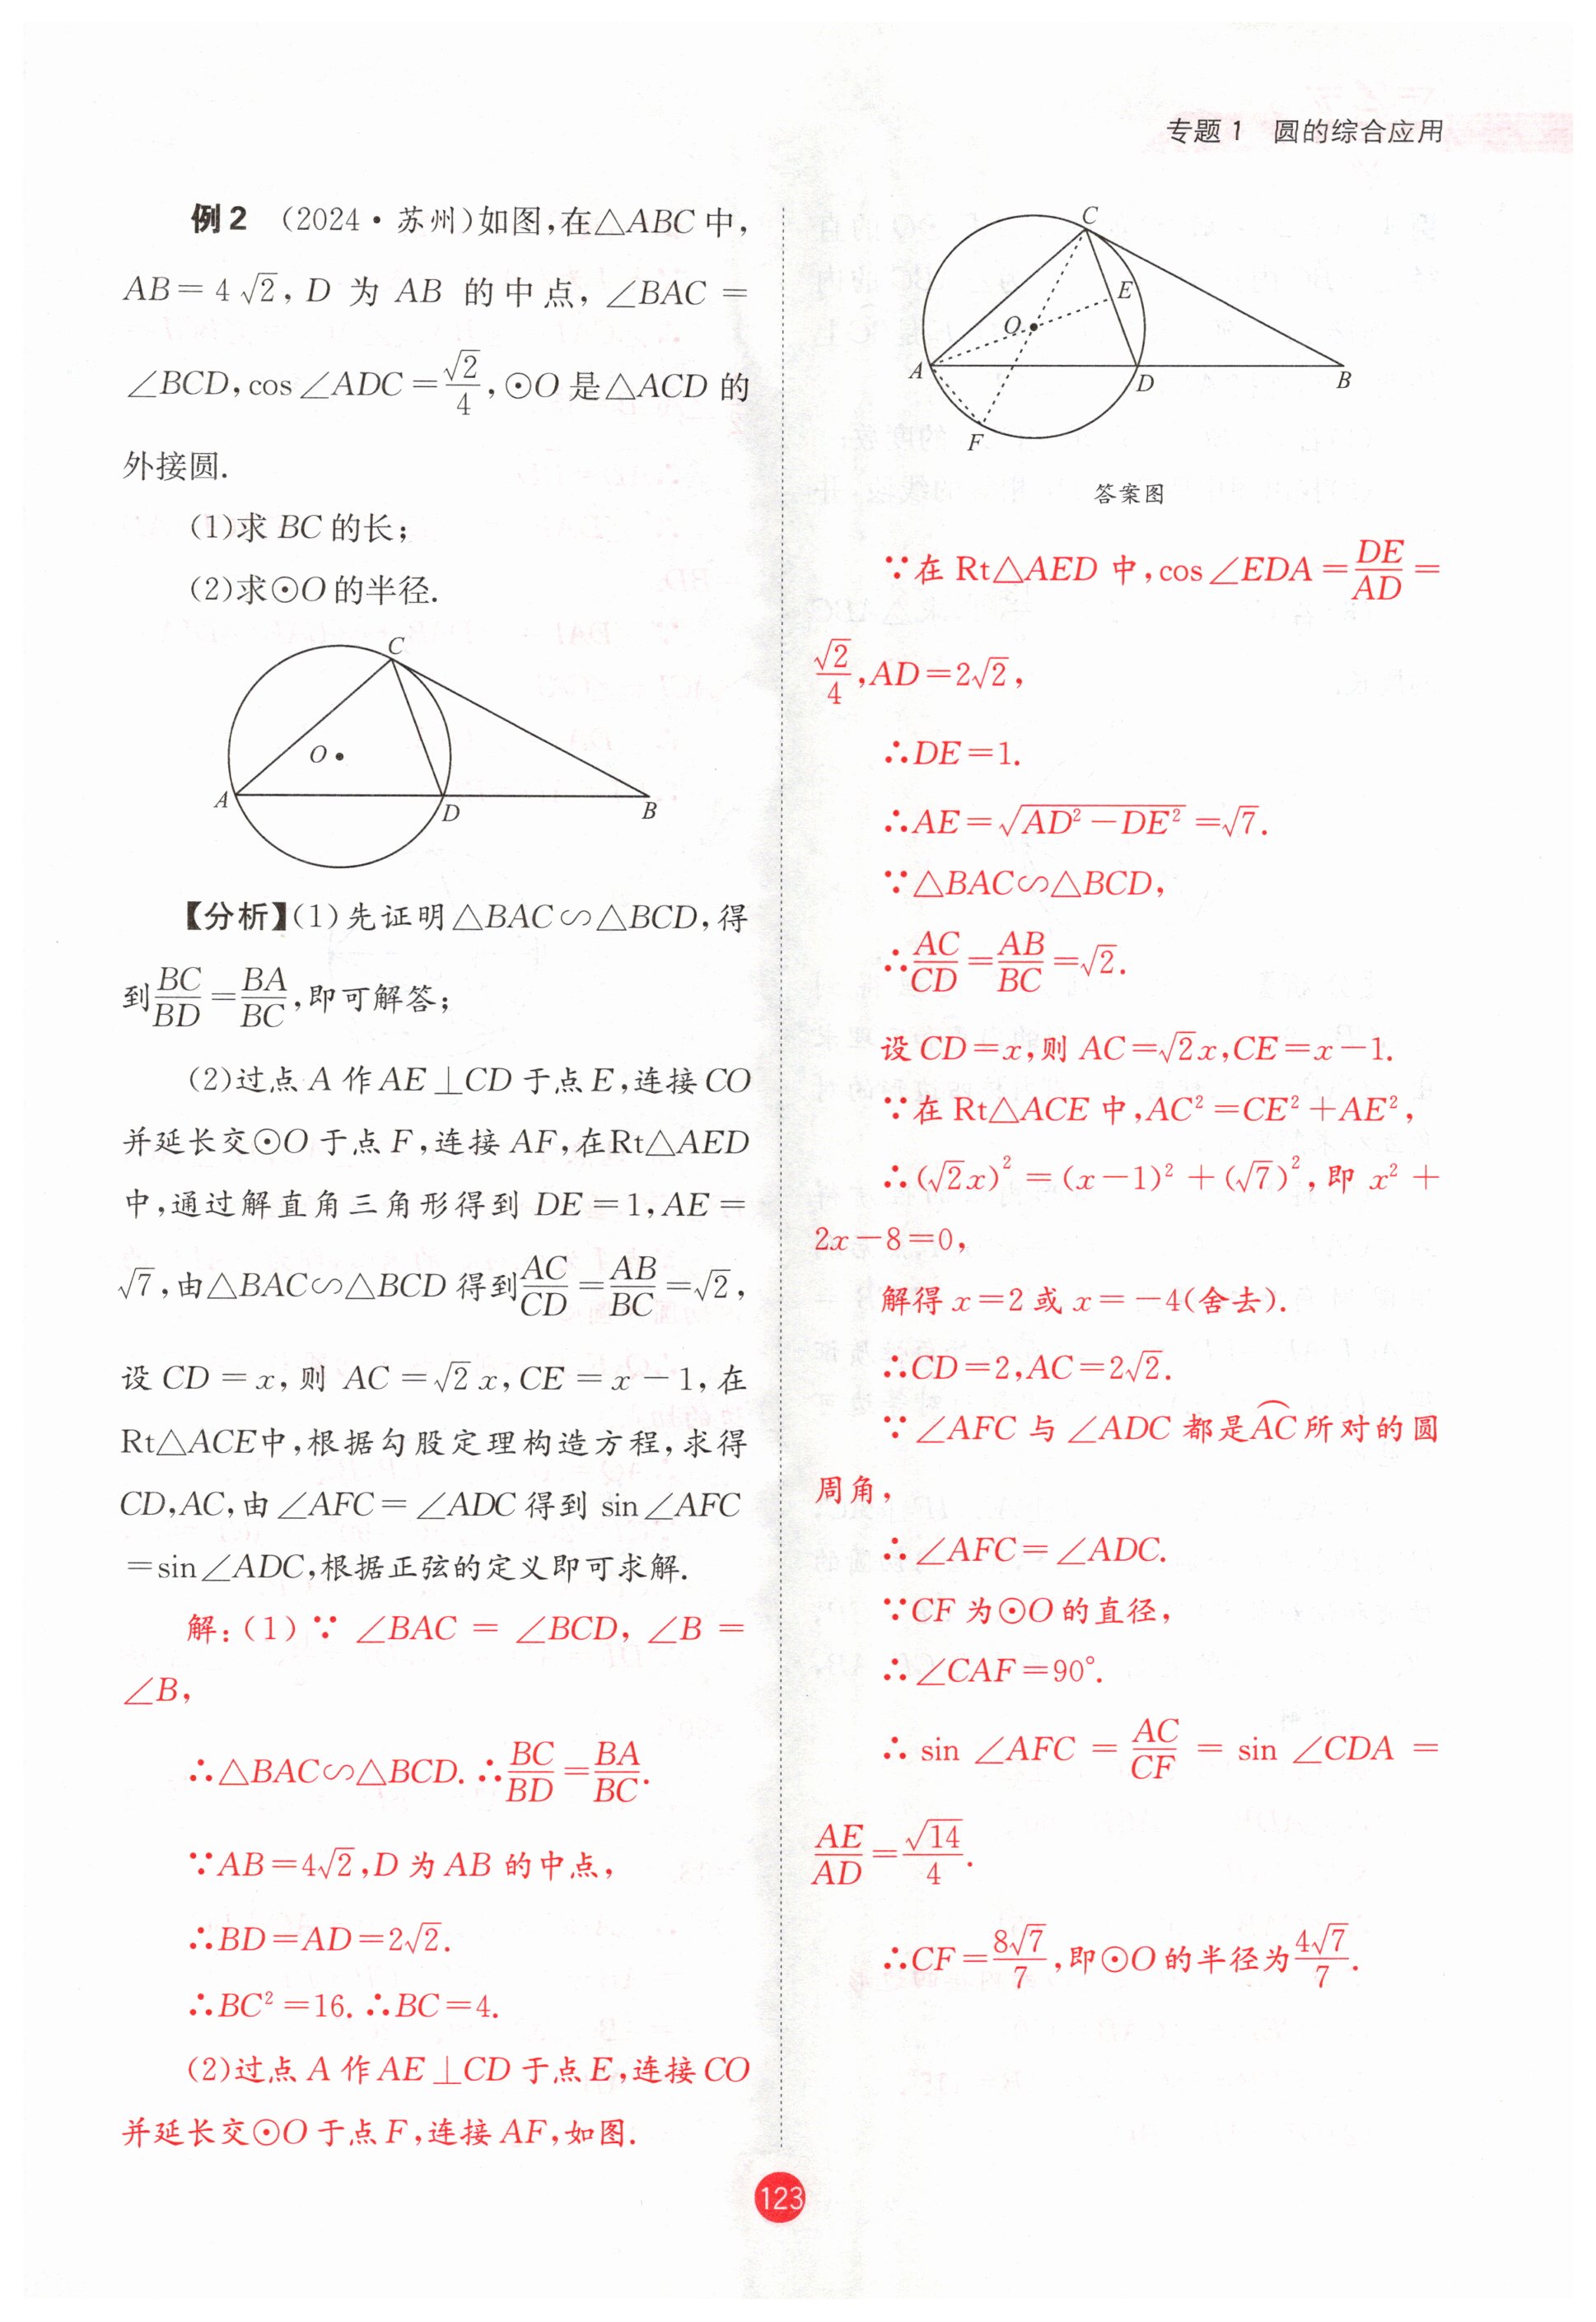 专题1 圆的综合应用
例2 (2024·苏州)如图,在△ABC中,
AB=4√2,D为AB的中点,∠BAC=
∠BCD,cos∠ADC=√2/4,⊙O是△ACD的
外接圆.
(1)求BC的长;
(2)求⊙O的半径.
C
O
A
D
B
【分析】(1)先证明△BAC∽△BCD,得
到BC/BD=BA/BC,即可解答;
(2)过点A作AE⊥CD于点E,连接CO
并延长交⊙O于点F,连接AF,在Rt△AED
中,通过解直角三角形得到DE=1,AE=
√7,由△BAC∽△BCD得到AC/CD=AB/BC=√2,
设CD=x,则AC=√2x,CE=x-1,在
Rt△ACE中,根据勾股定理构造方程,求得
CD,AC,由∠AFC=∠ADC得到sin∠AFC
=sin∠ADC,根据正弦的定义即可求解.
解:(1)∵∠BAC=∠BCD,∠B=
∠B,
∴△BAC∽△BCD.∴BC/BD=BA/BC.
∵AB=4√2,D为AB的中点,
∴BD=AD=2√2.
∴BC²=16.∴BC=4.
(2)过点A作AE⊥CD于点E,连接CO
并延长交⊙O于点F,连接AF,如图.
C
E
O
A
D
B
F
答案图
∵在Rt△AED中,cos∠EDA=DE/AD=
√2/4,AD=2√2,
∴DE=1.
∴AE=√(AD²-DE²)=√7.
∵△BAC∽△BCD,
∴AC/CD=AB/BC=√2.
设CD=x,则AC=√2x,CE=x-1.
∵在Rt△ACE中,AC²=CE²+AE²,
∴(√2x)²=(x-1)²+(√7)²,即x²+
2x-8=0,
解得x=2或x=-4(舍去).
∴CD=2,AC=2√2.
∵∠AFC与∠ADC都是⌒AC所对的圆
周角,
∴∠AFC=∠ADC.
∵CF为⊙O的直径,
∴∠CAF=90°.
∴sin∠AFC=AC/CF=sin∠CDA=
AE/AD=√14/4.
∴CF=8√7/7,即⊙O的半径为4√7/7.
123